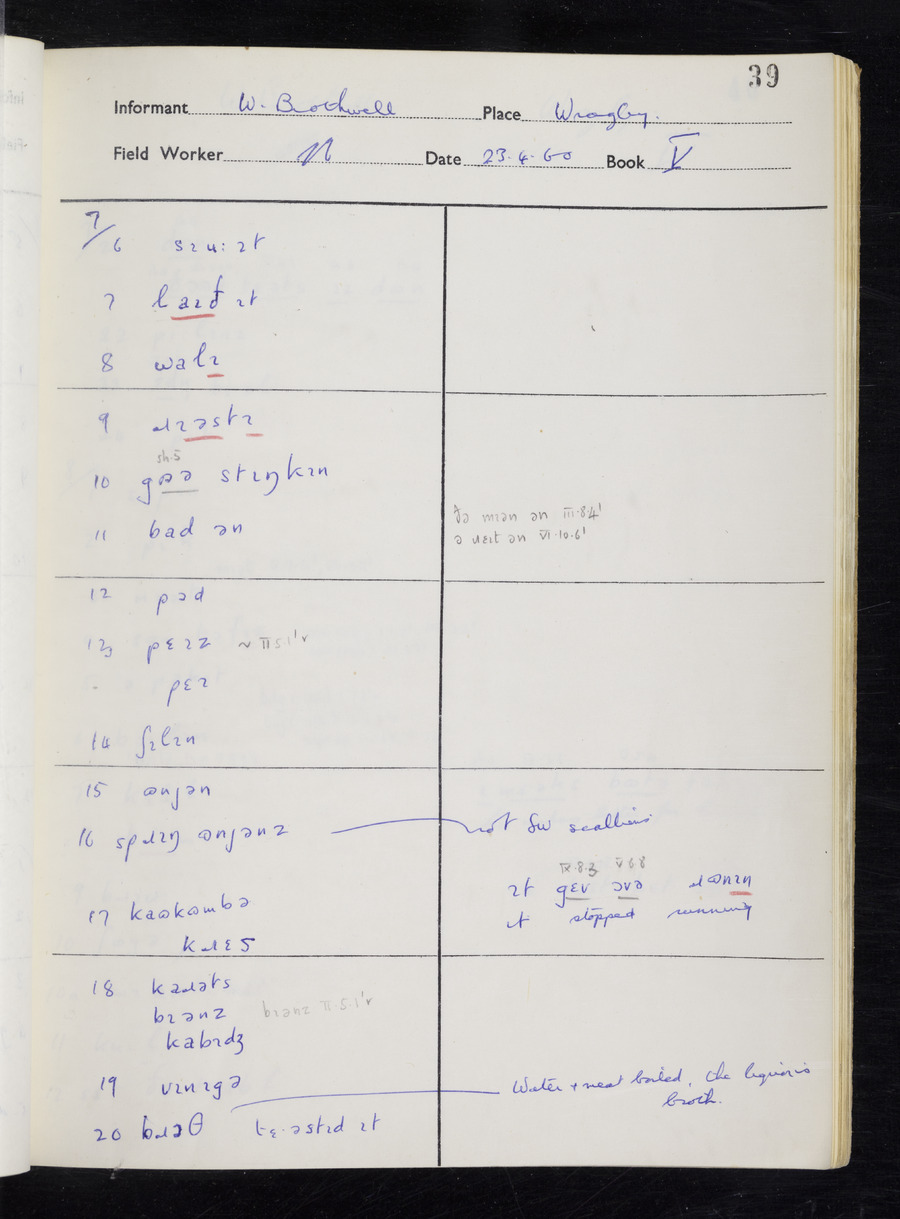 39
Informant W. Brothwell Place Wragby.
Field Worker Date 23.4.60 Book V
7/6 sɪʉ: ɪt
7 laɪð ɪt
8 walɪ
9 ɹɪəstɪ
sh.5
10 gɒə stɪŋkɪn
11 bad ən
ðə mɪən ən III.8.4'
ə ɹɛɪt ən VI.10.6'
12 pɒd
13 pɛɪz ~ II 5.1'v
pɛɪ
14 ʃɪlɪn
15 ɷnjən
16 spɹɪŋ ɷnjənz not fw scallions
IX.8.3 V 6 8
ɪt gɛv ɔvə ɹɷnɪn
it stopped running
17 kaɷkɷmbə
kɹɛs
18 kaɹəts
bɪənz bɪənz II.5.1'v
kabɪdʒ
19 vɪnɪgə
Water + meat boiled, the liquor is
broth.
20 bɹɔθ tɛ·əstɪd ɪt